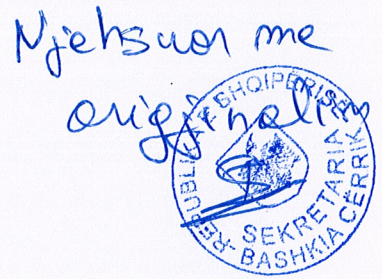 Njehsuar me
origjinalin
REPUBLIKA E SHQIPËRISË
SEKRETARIA
BASHKIA CËRRIK